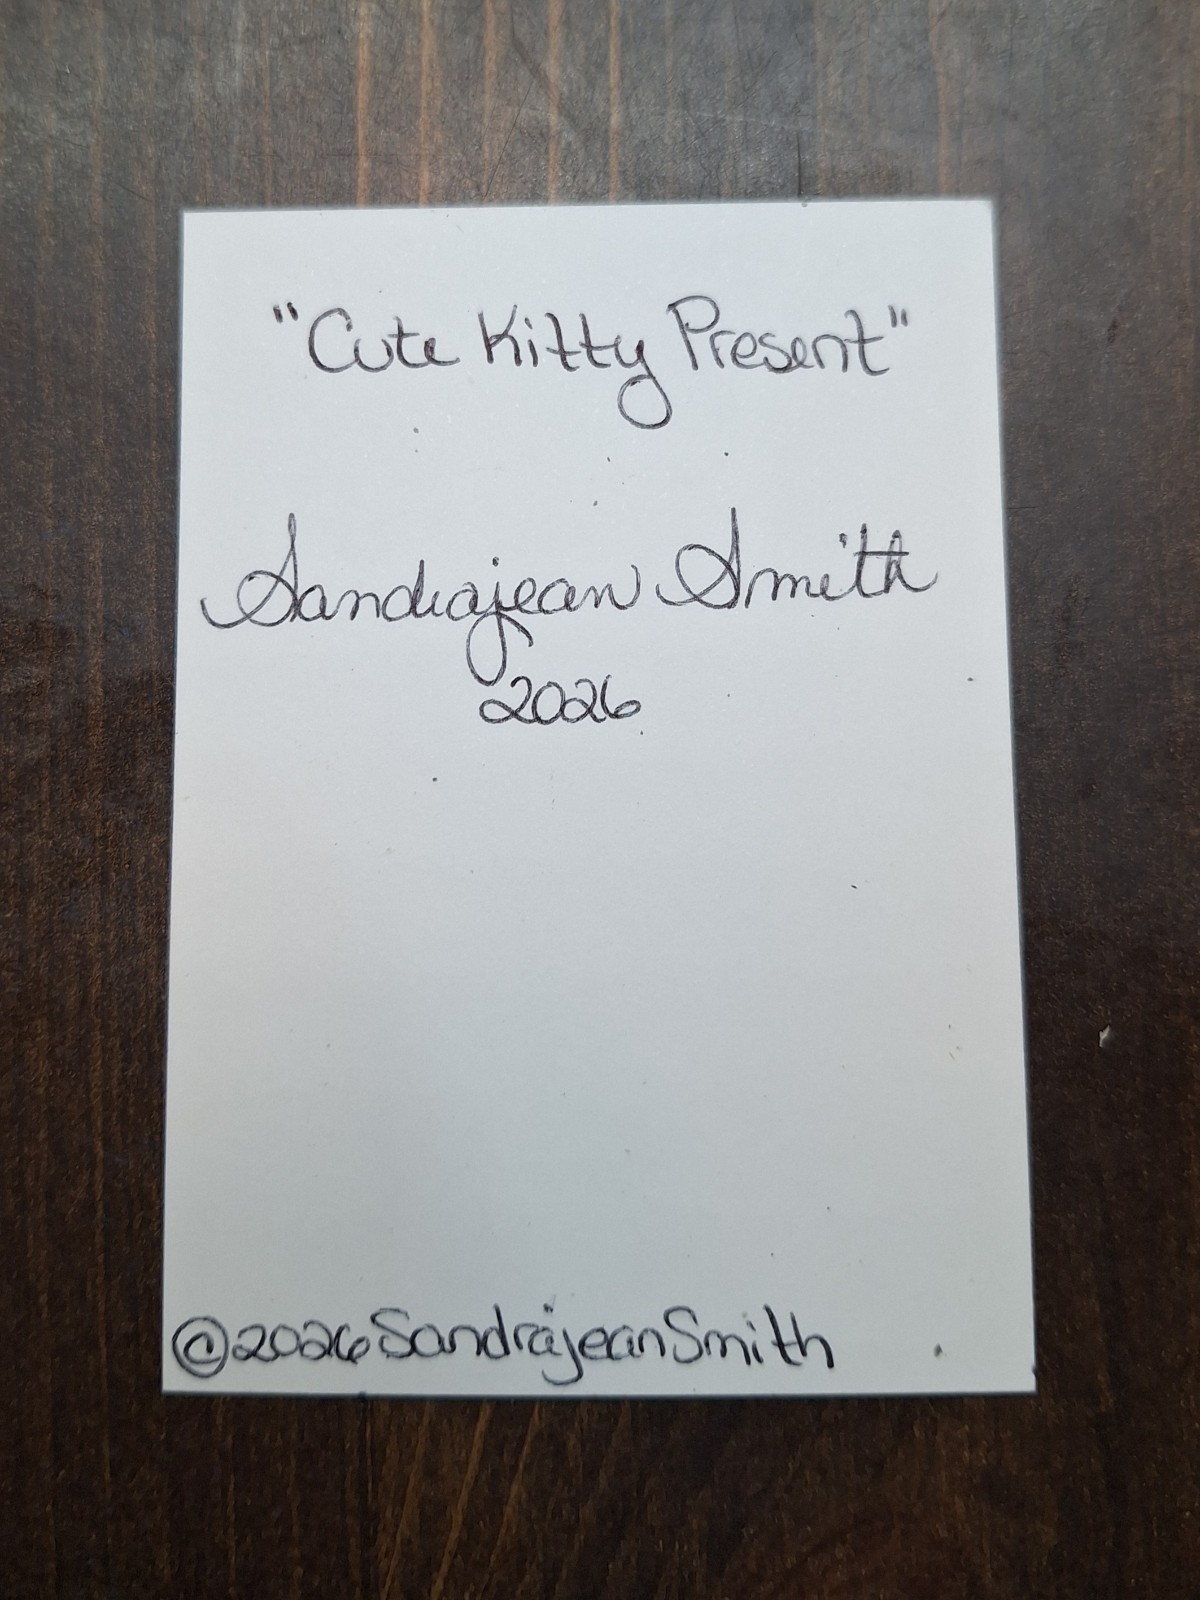 "Cute Kitty Present"
Sandrajean Smith
2026
©2026SandrajeanSmith